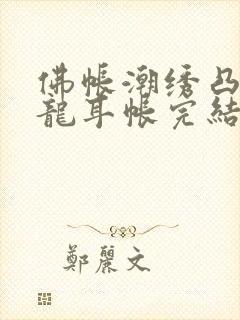 佛帳潮绣凸
龍耳帐完結
鄭麗文